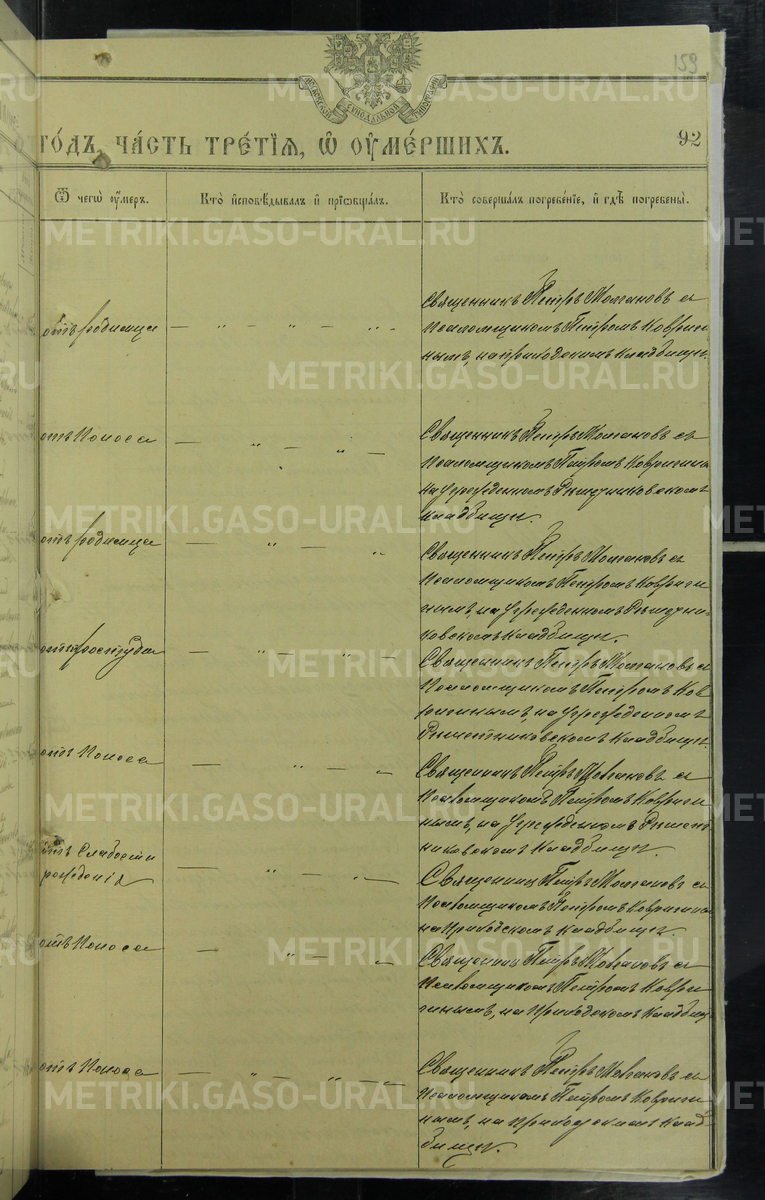 159
МОСКОВСКОЙ СѴНОДАЛЬНОЙ ТИПОГРАФІИ
METRIKI.GASO-URAL.RU
го́дъ, ча́сть тре́тїѧ, ѡ҆ ᲂу҆ме́ршихъ.
92
Ѿ чегѡ̀ ᲂу҆́меръ.
Кто̀ и҆сповѣ́дывалъ и҆ прїѻбща́лъ.
Кто̀ соверша́лъ погребе́нїе, и҆ гдѣ̀ погребены̀.
отъ родимца
Священникъ Петръ Молчановъ съ
Псаломщикомъ Петромъ Ковриги
нымъ, на приходскомъ кладбищѣ.
отъ Поноса
Священникъ Петръ Молчановъ съ
Псаломщикомъ Петромъ Ковригины
на Учрежденномъ
кладбищѣ.
отъ родимца
Священникъ Петръ Молчановъ съ
Псаломщикомъ Петромъ Ковриги
нымъ, на Учрежденномъ
ковскомъ Кладбищѣ.
отъ простуды
Священникъ Петръ Молчановъ съ
Псаломщикомъ Петромъ Ков
ригинымъ, на Учрежденномъ
Кладбищѣ.
отъ Поноса
Священникъ Петръ Молчановъ съ
Псаломщикомъ Петромъ Ковриги
нымъ, на Учрежденномъ
никовскомъ Кладбищѣ.
отъ Слабости
рожденія
Священникъ Петръ Молчановъ съ
Псаломщикомъ Петромъ Ковригины
на Приходскомъ кладбищѣ.
отъ Поноса
Священникъ Петръ Молчановъ съ
Псаломщикомъ Петромъ Ковриги
нымъ, на Приходскомъ Кладбищ
отъ Поноса
Священникъ Петръ Молчановъ съ
Псаломщикомъ Петромъ Ковриги
нымъ, на Приходскомъ Клад
бищѣ.